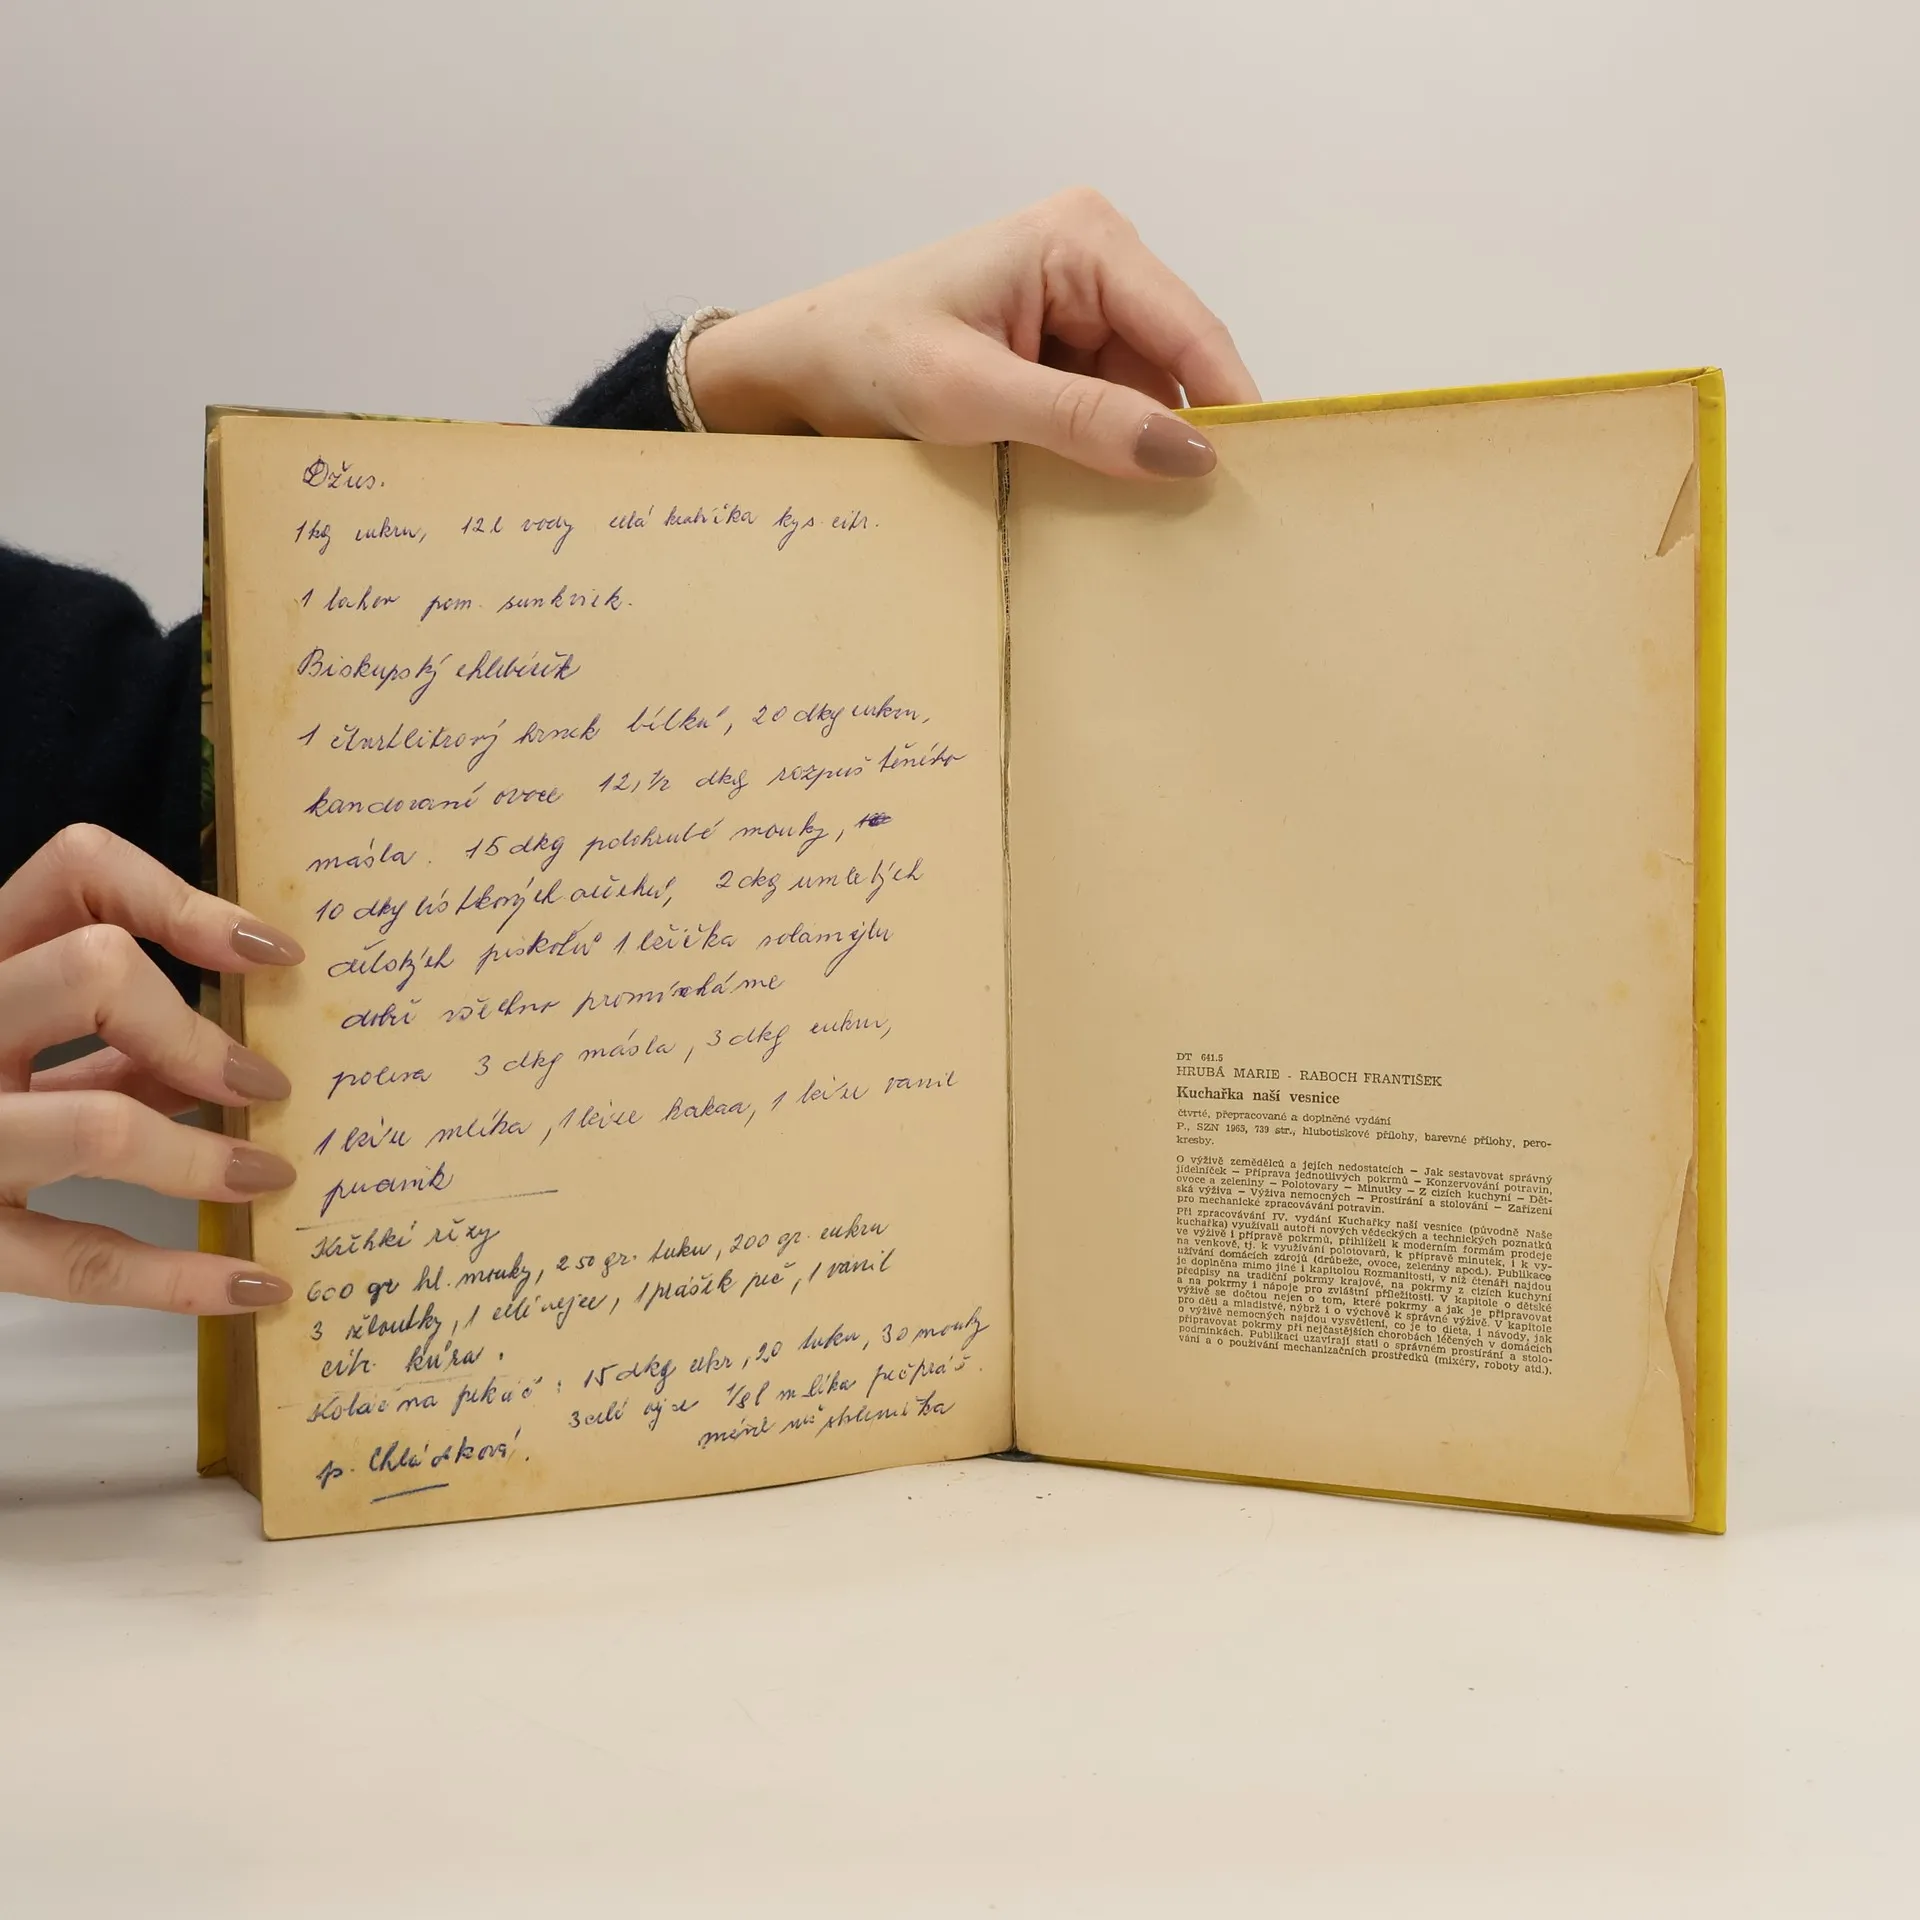 Džus.
1 kg cukru, 12 l vody celá krabička kys. citr.
1 lahev pom. sunkvick.
Biskupský chlebíček
1 čtvrtlitrový hrnek bílků, 20 dkg cukru,
kandované ovoce 12,1/2 dkg rozpuštěného
másla. 15 dkg polohrubé mouky,
10 dkg lístkových ořechů, 2 dkg umletých
dětských piškotů 1 lžička solamylu
dobře všechno promícháme
poleva 3 dkg másla, 3 dkg cukru,
1 lžíce mléka, 1 lžíce kakaa, 1 lžíce vanil
pudink
Křehké řezy
600 gr hl. mouky, 250 gr. tuku, 200 gr. cukru
3 žloutky, 1 celé vejce, 1 prášek peč, 1 vanil
citr. kůra.
Koláč na pekáč: 15 dkg cukr, 20 tuku, 30 mouky
3 celé vejce 1/8 l mléka peč práš.
méně než sklenička
p. Chládková.
DT 641.5
HRUBÁ MARIE - RABOCH FRANTIŠEK
Kuchařka naší vesnice
čtvrté, přepracované a doplněné vydání
P., SZN 1965, 739 str., hlubotiskové přílohy, barevné přílohy, pero-
kresby.
O výživě zemědělců a jejích nedostatcích – Jak sestavovat správný
jídelníček – Příprava jednotlivých pokrmů – Konzervování potravin,
ovoce a zeleniny – Polotovary – Minutky – Z cizích kuchyní – Dět-
ská výživa – Výživa nemocných – Prostírání a stolování – Zařízení
pro mechanické zpracovávání potravin.
Při zpracovávání IV. vydání Kuchařky naší vesnice (původně Naše
kuchařka) využívali autoři nových vědeckých a technických poznatků
ve výživě i přípravě pokrmů, přihlíželi k moderním formám prodeje
na venkově, tj. k využívání polotovarů, k přípravě minutek, i k vy-
užívání domácích zdrojů (drůbeže, ovoce, zeleniny apod.). Publikace
je doplněna mimo jiné i kapitolou Rozmanitosti, v níž čtenáři najdou
předpisy na tradiční pokrmy krajové, na pokrmy z cizích kuchyní
a na pokrmy i nápoje pro zvláštní příležitosti. V kapitole o dětské
výživě se dočtou nejen o tom, které pokrmy a jak je připravovat
pro děti a mladistvé, nýbrž i o výchově k správné výživě. V kapitole
o výživě nemocných najdou vysvětlení, co je to dieta, i návody, jak
připravovat pokrmy při nejčastějších chorobách léčených v domácích
podmínkách. Publikaci uzavírají stati o správném prostírání a stolo-
vání a o používání mechanizačních prostředků (mixéry, roboty atd.).